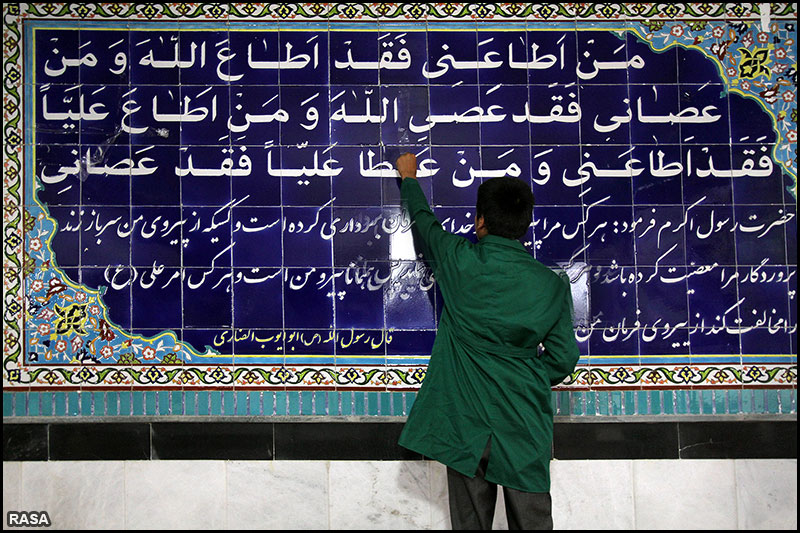 مَنْ اَطاعَنی فَقَدْ اَطاعَ اللهَ وَ مَنْ
عَصانی فَقَد عَصی اللهَ وَ مَنْ اَطاعَ عَلیّاً
فَقَدْ اَطاعَنی وَ مَنْ عَصا عَلیّاً فَقَد عَصانی
حضرت رسول اکرم فرمود: هر کس مرا خدای برداری کرده است و کسیکه از پیروی من سرباز زند
پروردگار مرا معصیت کرده باشد و پیرو من است و هر کس امر علی (ع)
را مخالفت کند از پیروی فرمان من
قال رسول الله (ص) ابو ایوب انصاری
RASA